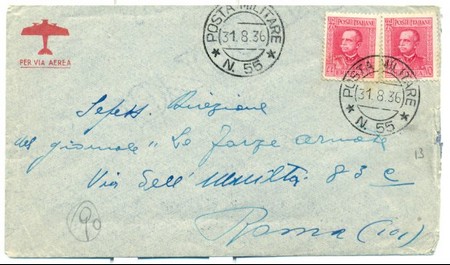 POSTE ITALIANE POSTE ITALIANE
POSTA MILITARE
31.8.36
N. 55
PER VIA AEREA
POSTA MILITARE
31.8.36
N. 55
Direzione
del giornale "Le forze armate
Via dell' 83 c
13
Roma
90